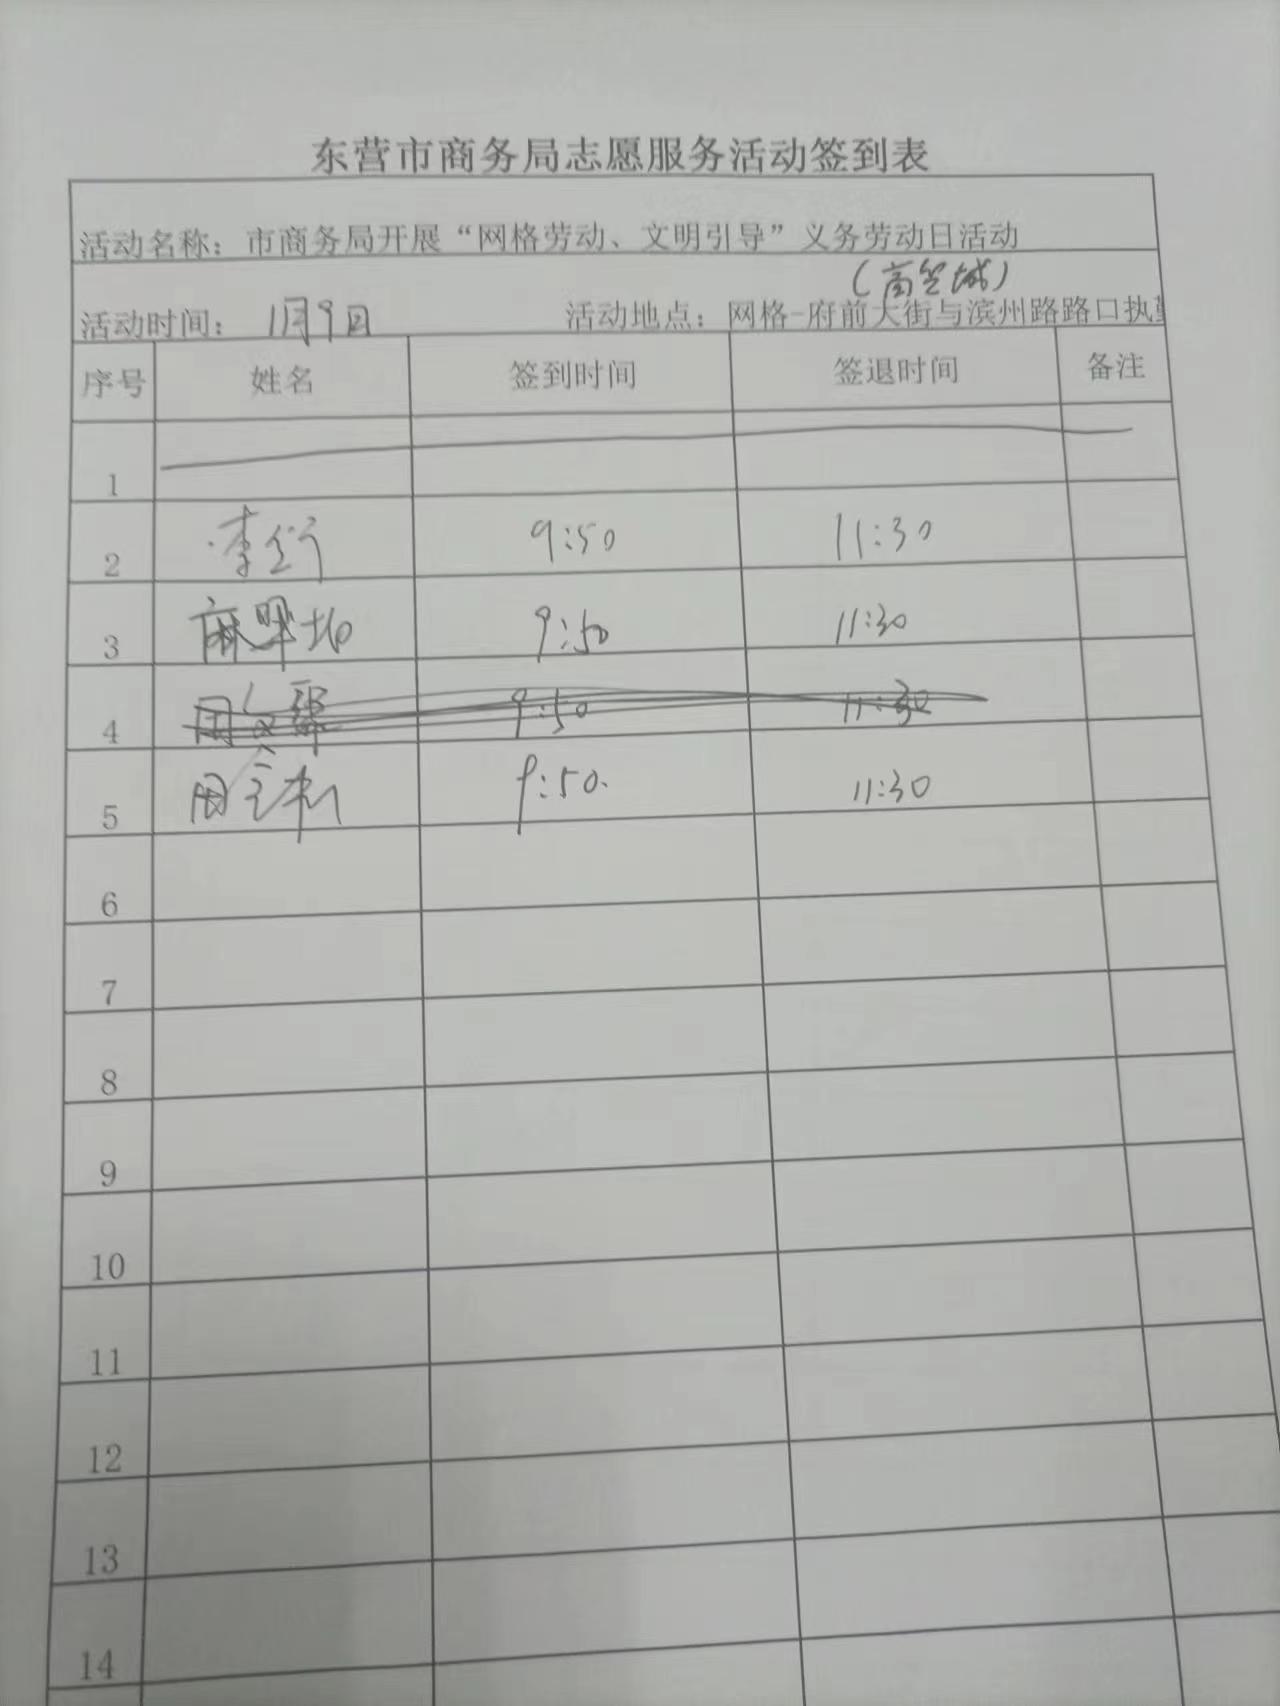 东营市商务局志愿服务活动签到表
活动名称：市商务局开展“网格劳动、文明引导”义务劳动日活动
活动时间：1月9日 活动地点：网格-府前大街与滨州路路口执勤
序号 姓名 签到时间 签退时间 备注
1
2 李 9:50 11:30
3 麻 9:50 11:30
4 9:50 11:30
5 9:50. 11:30
6
7
8
9
10
11
12
13
14